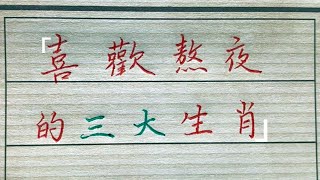 「喜歡熬夜
的三大生肖」